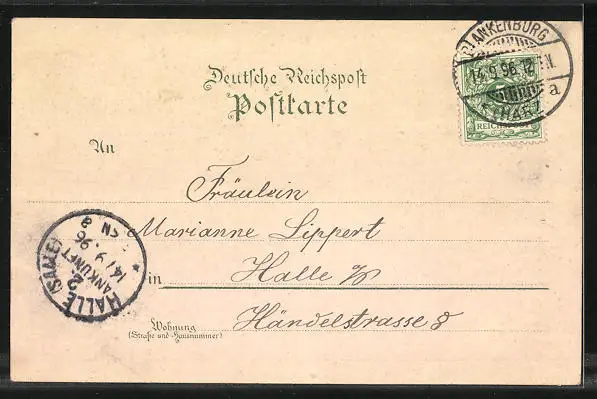 BLANKENBURG
14.9.96.12 N.
a
(HARZ)
REICHSPOST
Deutsche Reichspost
Postkarte
An
Fräulein
Marianne Lippert
in Halle a/S
Händelstrasse 8
Wohnung
(Straße und Hausnummer)
HALLE (SAALE)
2
ANKUNFT
14/9.96
8 N